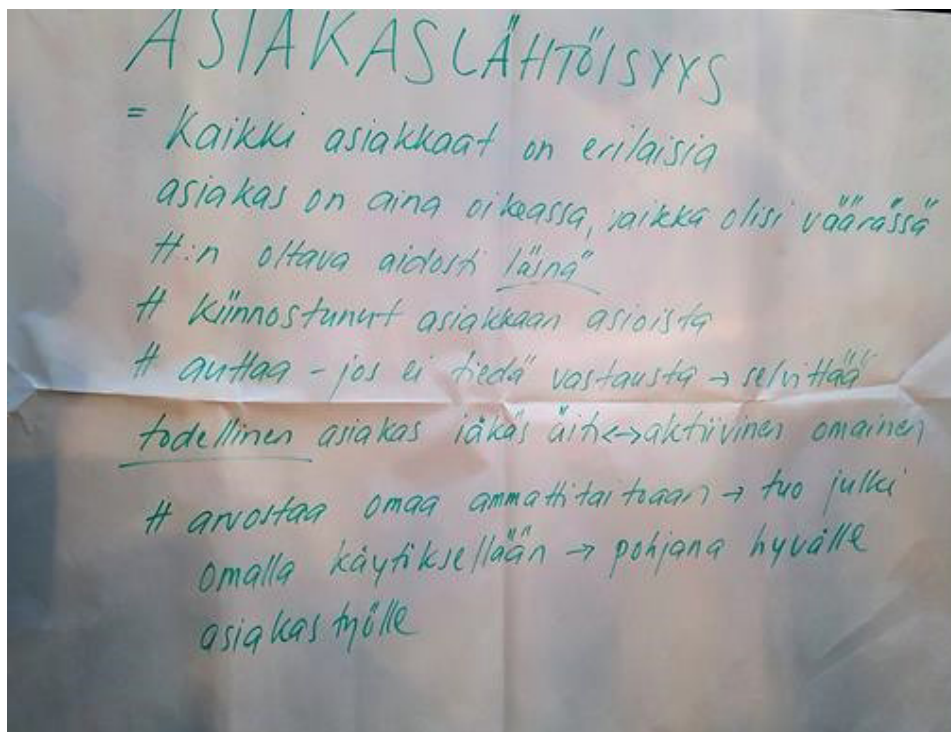 ASIAKASLÄHTÖISYYS
= Kaikki asiakkaat on erilaisia
asiakas on aina oikeassa, vaikka olisi väärässä
H:n oltava aidosti läsnä
H kiinnostunut asiakkaan asioista
H auttaa - jos ei tiedä vastausta → selvittää
todellinen asiakas iäkäs äiti ↔ aktiivinen omainen
H arvostaa omaa ammattitaitoaan → tuo julki
omalla käytöksellään → pohjana hyvälle
asiakastyölle